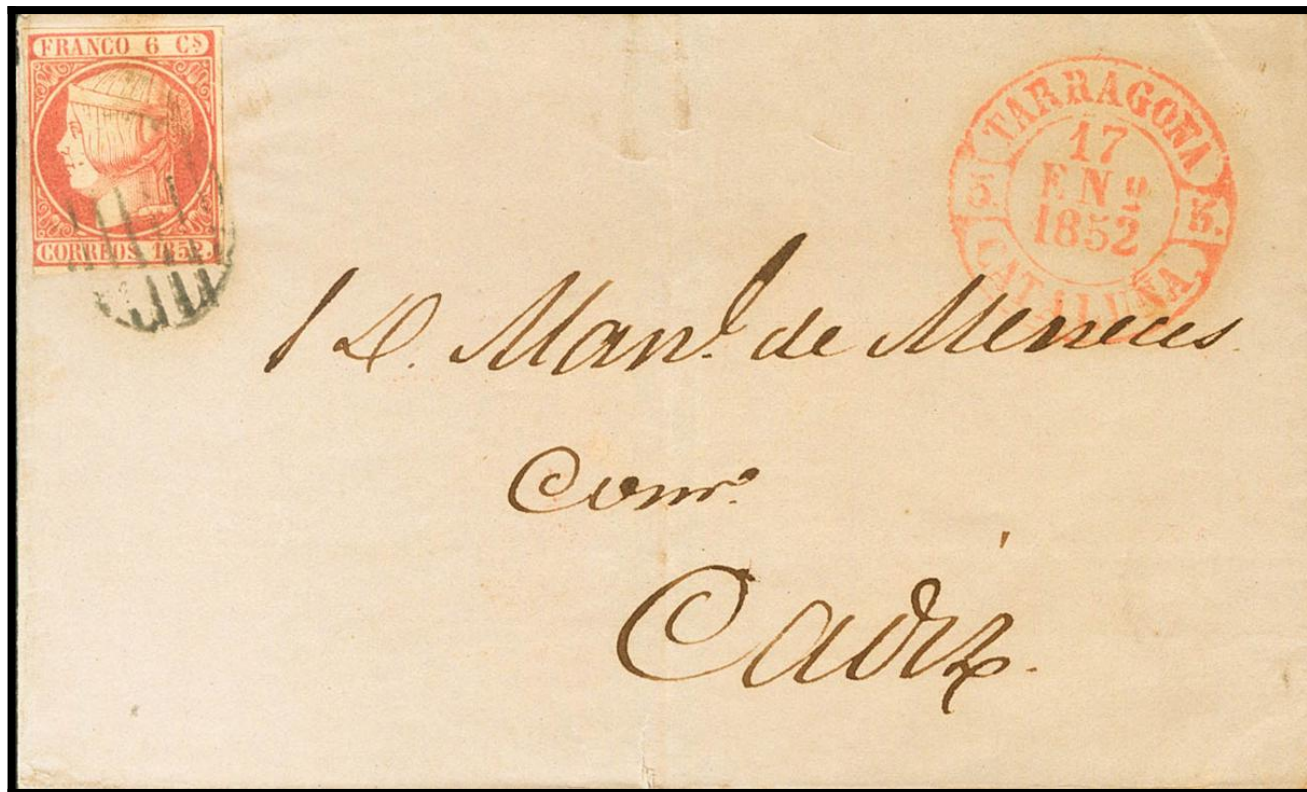 FRANCO 6 Cs
CORREOS 1852.
TARRAGONA
17
ENº
1852
CATALUÑA.
5. 5.
D. Manl. de Meneces
Comº
Cadiz.